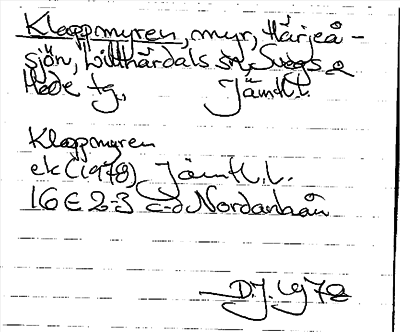 Klappmyren, myr, Härjeå-
sjön, Lillhärdals sn, Svegs o
Hede tg, Jämtl.l.
Klappmyren
ek (1978) Jämtl.l.
16 E 2-3 c-d Nordanhån
D.J. 1978